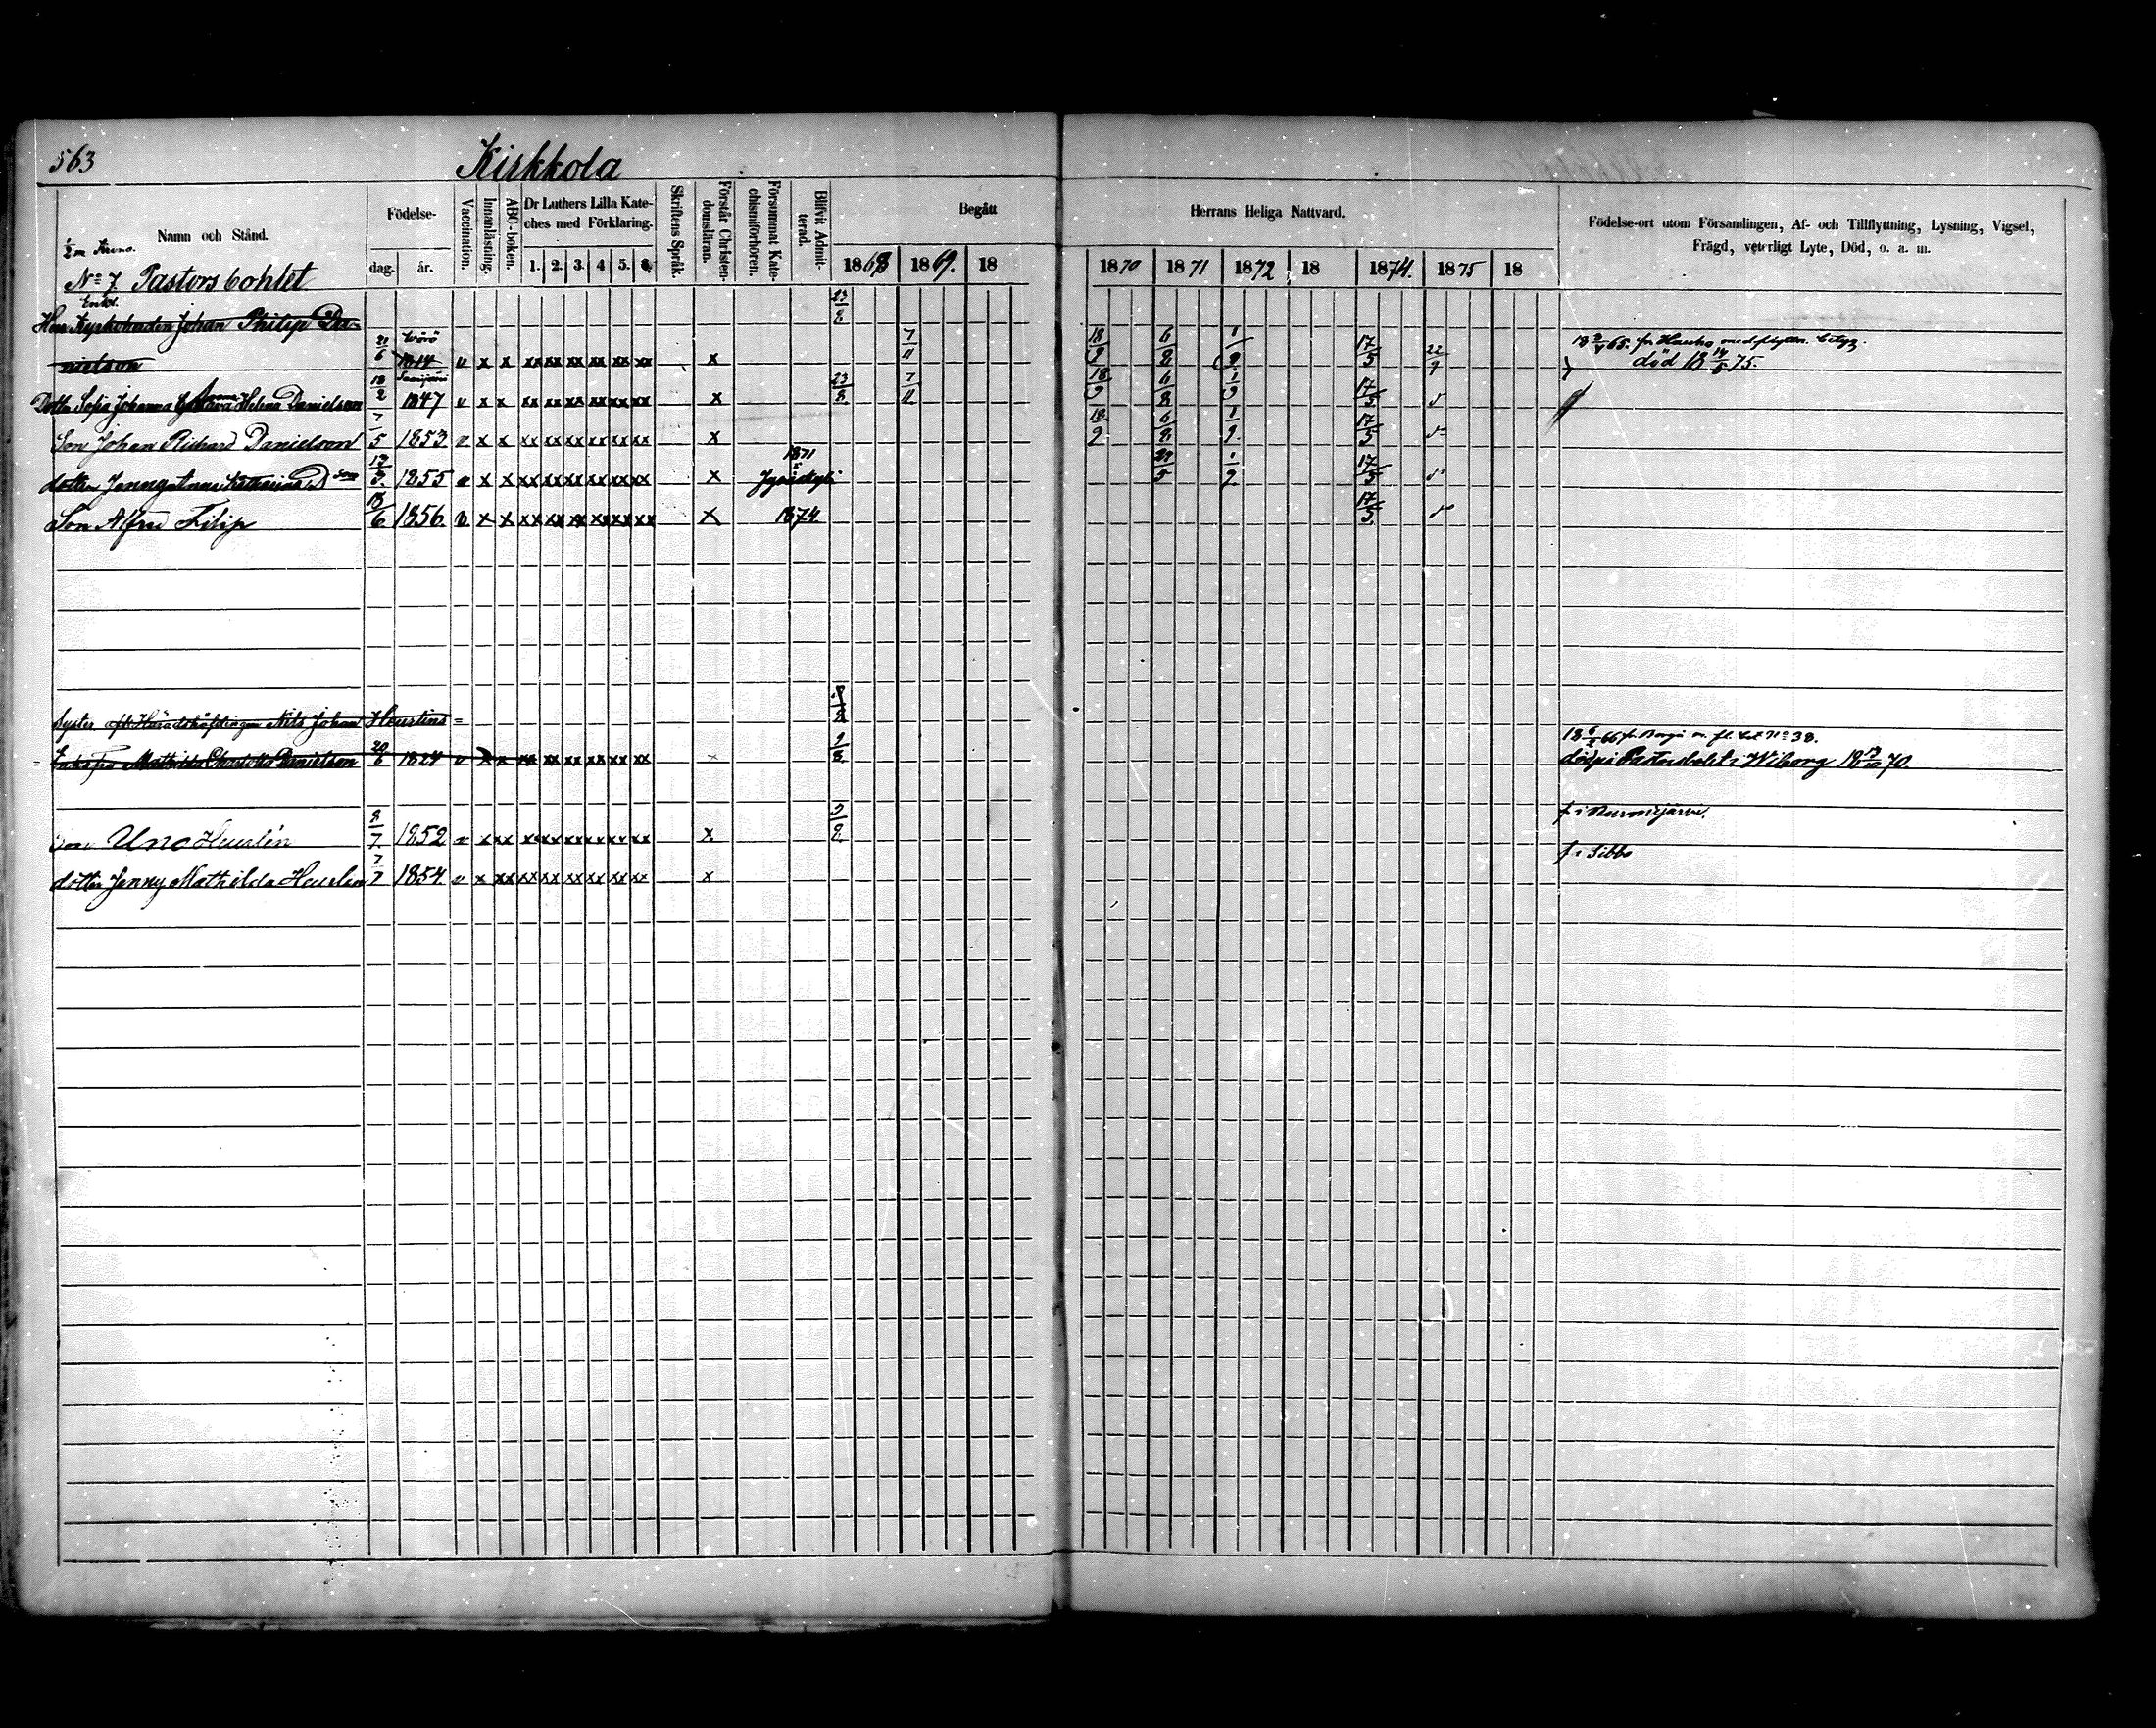 563
Kirkkola
Namn och Stånd.
Födelse-
dag.
år.
Vaccination.
Innanläsning.
ABC-boken.
Dr Luthers Lilla Kate-
ches med Förklaring.
1. 2. 3. 4 5. 6.
Skriftens Språk.
Förstår Christen-
domsläran.
Försummat Kate-
chismiförhören.
Blifvit Admit-
terad.
Begått
Herrans Heliga Nattvard.
1868 1869. 18
1870 1871 1872 18 1874. 1875 18
Födelse-ort utom Församlingen, Af- och Tillflyttning, Lysning, Vigsel,
Frägd, veterligt Lyte, Död, o. a. m.
No 7 Pastorsbohlet
Enkl.
Herr Kyrkoherden Johan Philip Da- 23/8
nielson 21/6 Wörö 1814 v x x xx xx xx xx xx xx x 7/11 18/9 6/8 1/9 17/5 22/9
död 18 14/5 75.
Dotter Sofia Johanna Gustava Helena Danielson 18/2 1847 v x x xx xx xx xx xx xx x 23/8 7/11 18/9 6/8 1/9 17/5
Son Johan Richard Danielson 7/5 1853 v x x xx xx xx xx xx xx x 18/9 6/8 1/9 17/5
dotter 1855 v x x xx xx xx xx xx xx x 1871 1/9 17/5
Son Alfred Filip 1856 v x x xx xx xx xx xx xx x 1874. 17/5
Syster Häradshöfdingen Nils Johan Heurlins
Mathilda Charlotta Danielson 20/6 1824 v x x xx xx xx xx xx xx x
No 38.
död på Pastorsbolet i Wiborg 70.
Son Uno Heurlén 8/7 1852 v x xx xx xx xx xx xx xx x
f. i Nurmijärvi.
dotter Jenny Mathilda Heurlen 7/7 1854. v x xx xx xx xx xx xx xx x
f. i Sibbo